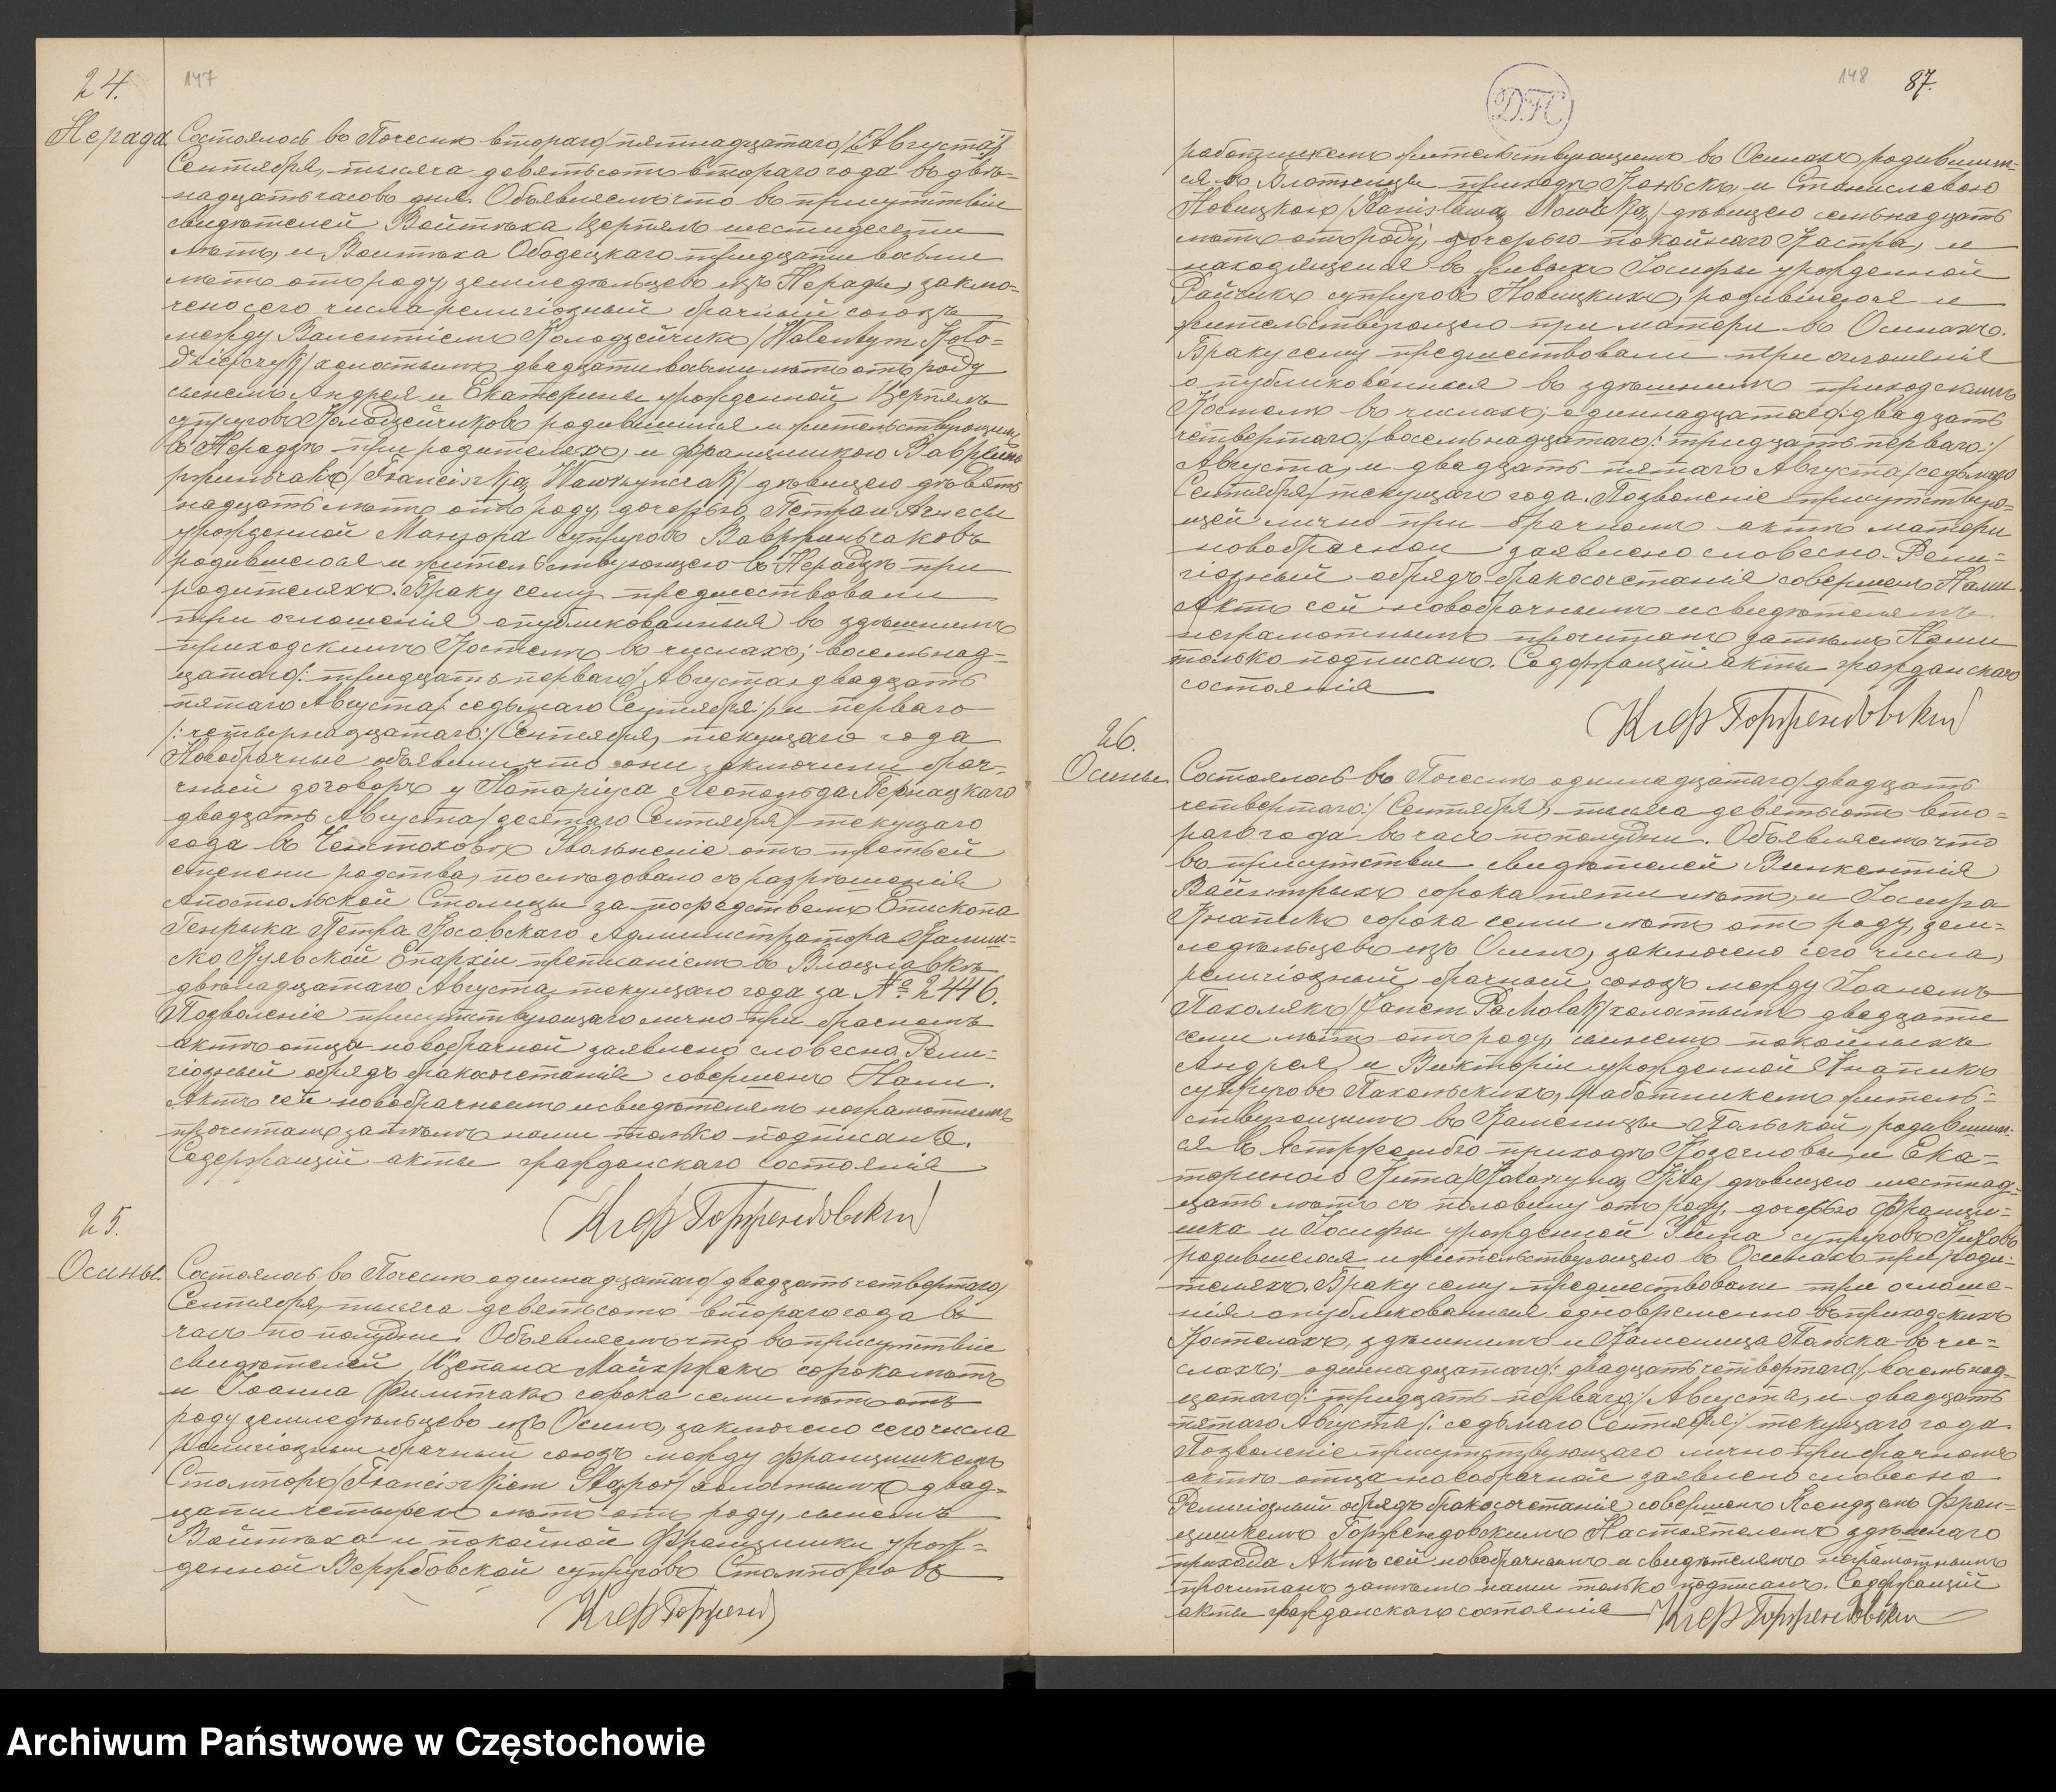 24.
147
Нерада
Состоялось въ Почеснѣ второго/пятнадцатаго/Августа/
Сентября, тысяча девятьсотъ второго года въ двѣ-
надцать часовъ дня. Объявляемъ что въ присутствіи
свидѣтелей Войтѣха Церпялъ шестидесяти
лѣтъ, и Войтѣха Ободецкаго тридцати восьми
лѣтъ отъ роду, земледѣльцевъ изъ Нерады, заклю-
чено сего числа религіозный брачный союзъ
между Валентіемъ Колодзейчикъ /Walentym Koło-
dziejczyk/ холостымъ двадцати восьми лѣтъ отъ роду
сыномъ Андрея и Екатерины урожденной Церпялъ
супруговъ Колодзейчиковъ родившимся и жительствующимъ
въ Нерадѣ при родителяхъ, и Францишкою Вавржин-
чакъ /Franciszką Wawrzynczak/ дѣвицею девят-
надцать лѣтъ отъ роду дочерью Петра и Агнесы
урожденной Мандора супруговъ Вавржинчаковъ
родившеюся и жительствующею въ Нерадѣ при
родителяхъ. Браку сему предшествовали
три оглашенія опубликованныя въ здѣшнимъ
приходскимъ Костелѣ въ числахъ; восемнад-
цатаго/: тридцать перваго/ Августа, двадцать
пятаго Августа/: седьмаго Сентября:/ и перваго
/:четырнадцатаго:/ Сентября, текущаго года
Новобрачные объявили что они заключили брач-
ный договоръ у Нотаріуса Леопольда Бернацкаго
двадцать Августа/десятаго Сентября/ текущаго
года въ Ченстоховѣ Увольненіе отъ третьей
степени родства, послѣдовало съ разрѣшенія
Апостольской Столицы за посредствомъ Епископа
Генрыка Петра Косовскаго Администратора Калиш-
ско Куявской Епархіи преписаніемъ въ Влоцлавкѣ
двѣнадцатаго Августа текущаго года за № 2446.
Позволеніе присутствующаго лично при брачномъ
актѣ отца новобрачной заявлено словесно. Рели-
гіозный обрядъ бракосочетанія совершенъ Нами.
Актъ сей новобрачнымъ и свидѣтелямъ неграмотнымъ
прочитанъ затѣмъ нами только подписанъ.
Содержащій акты гражданскаго состоянія
25.
Осины.
Состоялось въ Почеснѣ одиннадцатаго/двадцать четвертаго/
Сентября, тысяча девятьсотъ второго года въ
часъ по полудни. Объявляемъ что въ присутствіе
свидѣтелей, Щепана Майхржакъ сорока лѣтъ
и Іоанна Филипчакъ сорока семи лѣтъ отъ
роду земледѣльцевъ изъ Осинъ, заключено сего числа
религіозный брачный союзъ между Францишкемъ
Стомпоръ /Franciszkiem Stąpor/ холостымъ двад-
цати четырехъ лѣтъ отъ роду, сыномъ
Войтѣха и покойной Францишки урож-
денной Вержбовской супруговъ Стомпоровъ
148
87.
D.F.C
работникомъ жительствующимъ въ Осинахъ, родившим-
ся въ приходѣ и Станиславою
Новицкою /Stanisławą Nowicką/ дѣвицею семьнадцать
лѣтъ отъ роду, дочерью покойнаго Каспра, и
находящейся въ живыхъ Іосифы урожденной
Райчикъ супруговъ Новицкихъ, родившеюся и
жительствующею при матери въ Осинахъ.
Браку сему предшествовали три оглашенія
опубликованныя въ здѣшнимъ приходскимъ
Костелѣ въ числахъ; одиннадцатаго/:двадцать
четвертаго:/ восемьнадцатаго/: тридцать перваго:/
Августа, и двадцать пятаго Августа/седьмаго
Сентября/ текущаго года. Позволеніе присутствую-
щей лично при брачномъ актѣ матери
новобрачной заявлено словесно. Рели-
гіозный обрядъ бракосочетанія совершенъ Нами.
Актъ сей новобрачнымъ и свидѣтелямъ
неграмотнымъ прочитанъ затѣмъ Нами
только подписанъ. Содержащій акты гражданскаго
состоянія
26.
Осины.
Состоялось въ Почеснѣ одиннадцатаго/двадцать
четвертаго:/ Сентября, тысяча девятьсотъ вто-
раго года въ часъ по полудни. Объявляемъ что
въ присутствіи свидѣтелей Винкентія
сорока пяти лѣтъ, и Іосифа
Кнапикъ сорока семи лѣтъ отъ роду, зем-
ледѣльцевъ изъ Осинъ, заключено сего числа,
религіозный брачный союзъ между Іоаномъ
Пахолякъ /Janem Pacholak/ холостымъ двадцати
семи лѣтъ отъ роду, сыномъ покойныхъ
Андрея и Викторіи урожденной Кнапикъ
супруговъ Пахольскихъ, работникомъ житель-
ствующимъ въ Каменицы Польской, родившим-
ся въ приходѣ Козегловы, и Ека-
териною Кита /Katarzyną Kita/ дѣвицею шестнад-
цать лѣтъ съ половину отъ роду, дочерью Франци-
шка и Іосифы урожденной супруговъ Китовъ
родившеюся и жительствующею въ Осинахъ при роди-
теляхъ. Браку сему предшествовали три оглаше-
нія опубликованныя одновременно въ приходскихъ
Костелахъ, здѣшнимъ и Каменица Польска въ чи-
слахъ; одиннадцатаго/: двадцать четвертаго/, восемьнад-
цатаго/: тридцать перваго:/ Августа, и двадцать
пятаго Августа/: седьмаго Сентября:/ текущаго года.
Позволеніе присутствующаго лично при брачномъ
актѣ отца новобрачной заявлено словесно
Религіозный обрядъ бракосочетанія совершенъ Ксендзомъ Фран-
цишкемъ Горжендовскимъ Настоятелемъ здѣшнаго
прихода Актъ сей новобрачнымъ и свидѣтелямъ неграмотнымъ
прочитанъ затѣмъ нами только подписанъ. Содержащій
акты гражданскаго состоянія
Archiwum Państwowe w Częstochowie